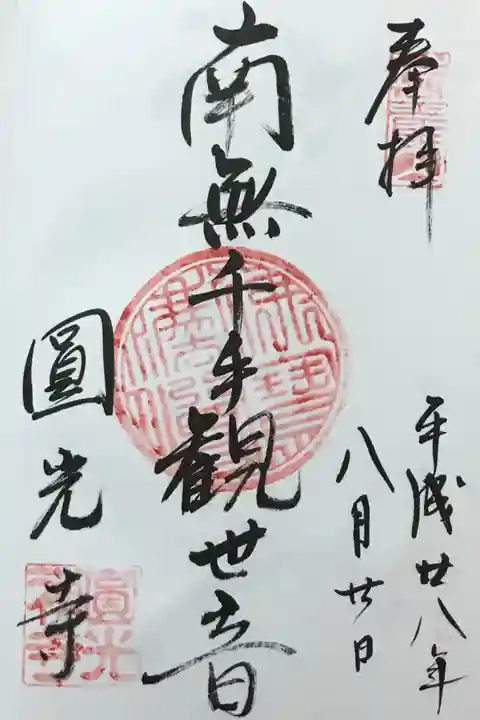 奉拝
平成廿八年
八月廿日
南無千手観世音
圓光寺
圓光